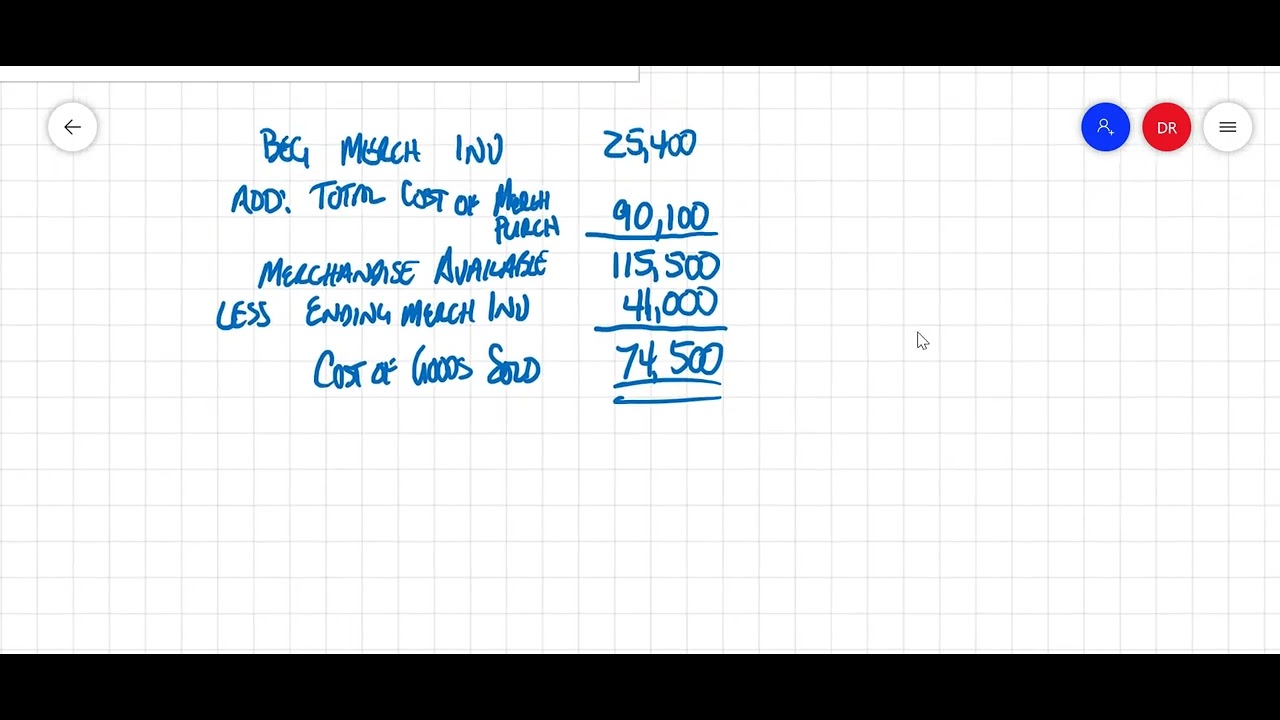 BEG MERCH INV 25,400
ADD: TOTAL COST OF MERCH
PURCH 90,100
MERCHANDISE AVAILABLE 115,500
LESS ENDING MERCH INV 41,000
COST OF GOODS SOLD 74,500
DR